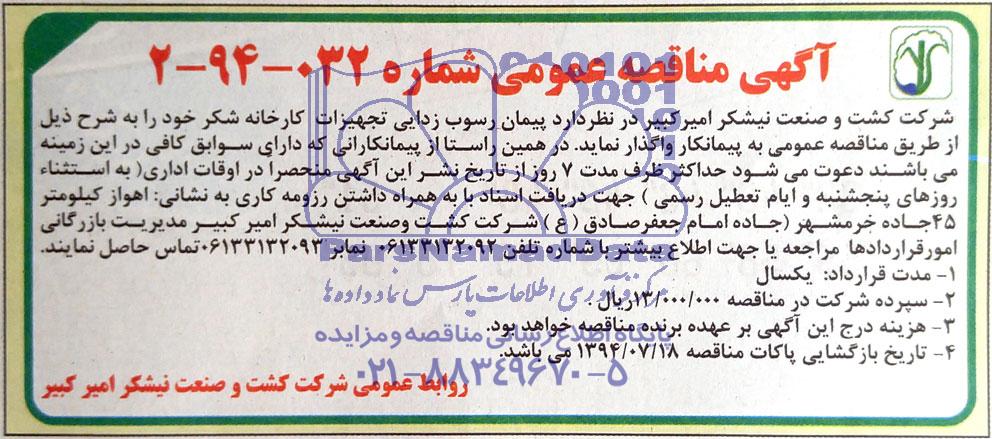 آگهی مناقصه عمومی شماره ۰۳۲-۹۴-۲
شرکت کشت و صنعت نیشکر امیرکبیر در نظردارد پیمان رسوب زدایی تجهیزات کارخانه شکر خود را به شرح ذیل
از طریق مناقصه عمومی به پیمانکار واگذار نماید. در همین راستا از پیمانکارانی که دارای سوابق کافی در این زمینه
می باشند دعوت می شود حداکثر ظرف مدت ۷ روز از تاریخ نشر این آگهی منحصراً در اوقات اداری( به استثناء
روزهای پنجشنبه و ایام تعطیل رسمی ) جهت دریافت اسناد با به همراه داشتن رزومه کاری به نشانی: اهواز کیلومتر
۴۵جاده خرمشهر (جاده امام جعفرصادق ( ع ) شرکت کشت وصنعت نیشکر امیر کبیر مدیریت بازرگانی
امورقراردادها مراجعه یا جهت اطلاع بیشتر با شماره تلفن ۰۶۱۳۳۱۳۲۰۹۲ نمابر ۰۶۱۳۳۱۳۲۰۹۳تماس حاصل نمایند.
۱- مدت قرارداد: یکسال
۲- سپرده شرکت در مناقصه ۱۳/۰۰۰/۰۰۰ریال .
۳- هزینه درج این آگهی بر عهده برنده مناقصه خواهد بود.
۴- تاریخ بازگشایی پاکات مناقصه ۱۳۹۴/۰۷/۱۸ می باشد.
روابط عمومی شرکت کشت و صنعت نیشکر امیر کبیر
ParsNamadData
مرکز فرآوری اطلاعات پارس نماد داده ها
پایگاه اطلاع رسانی مناقصه و مزایده
۰۲۱-۸۸۳۴۹۶۷۰-۵